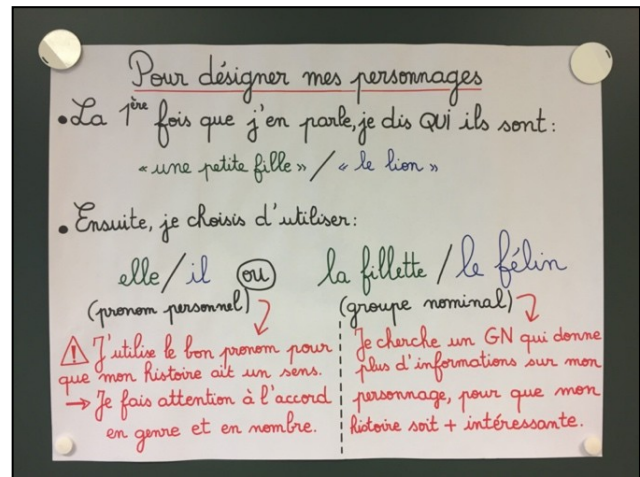 Pour désigner mes personnages
• La 1ère fois que j'en parle, je dis QUI ils sont :
« une petite fille » / « le lion »
• Ensuite, je choisis d'utiliser :
elle / il ou la fillette / le félin
(pronom personnel) (groupe nominal)
⚠ J'utilise le bon pronom pour
que mon histoire ait un sens.
→ Je fais attention à l'accord
en genre et en nombre.
Je cherche un GN qui donne
plus d'informations sur mon
personnage, pour que mon
histoire soit + intéressante.